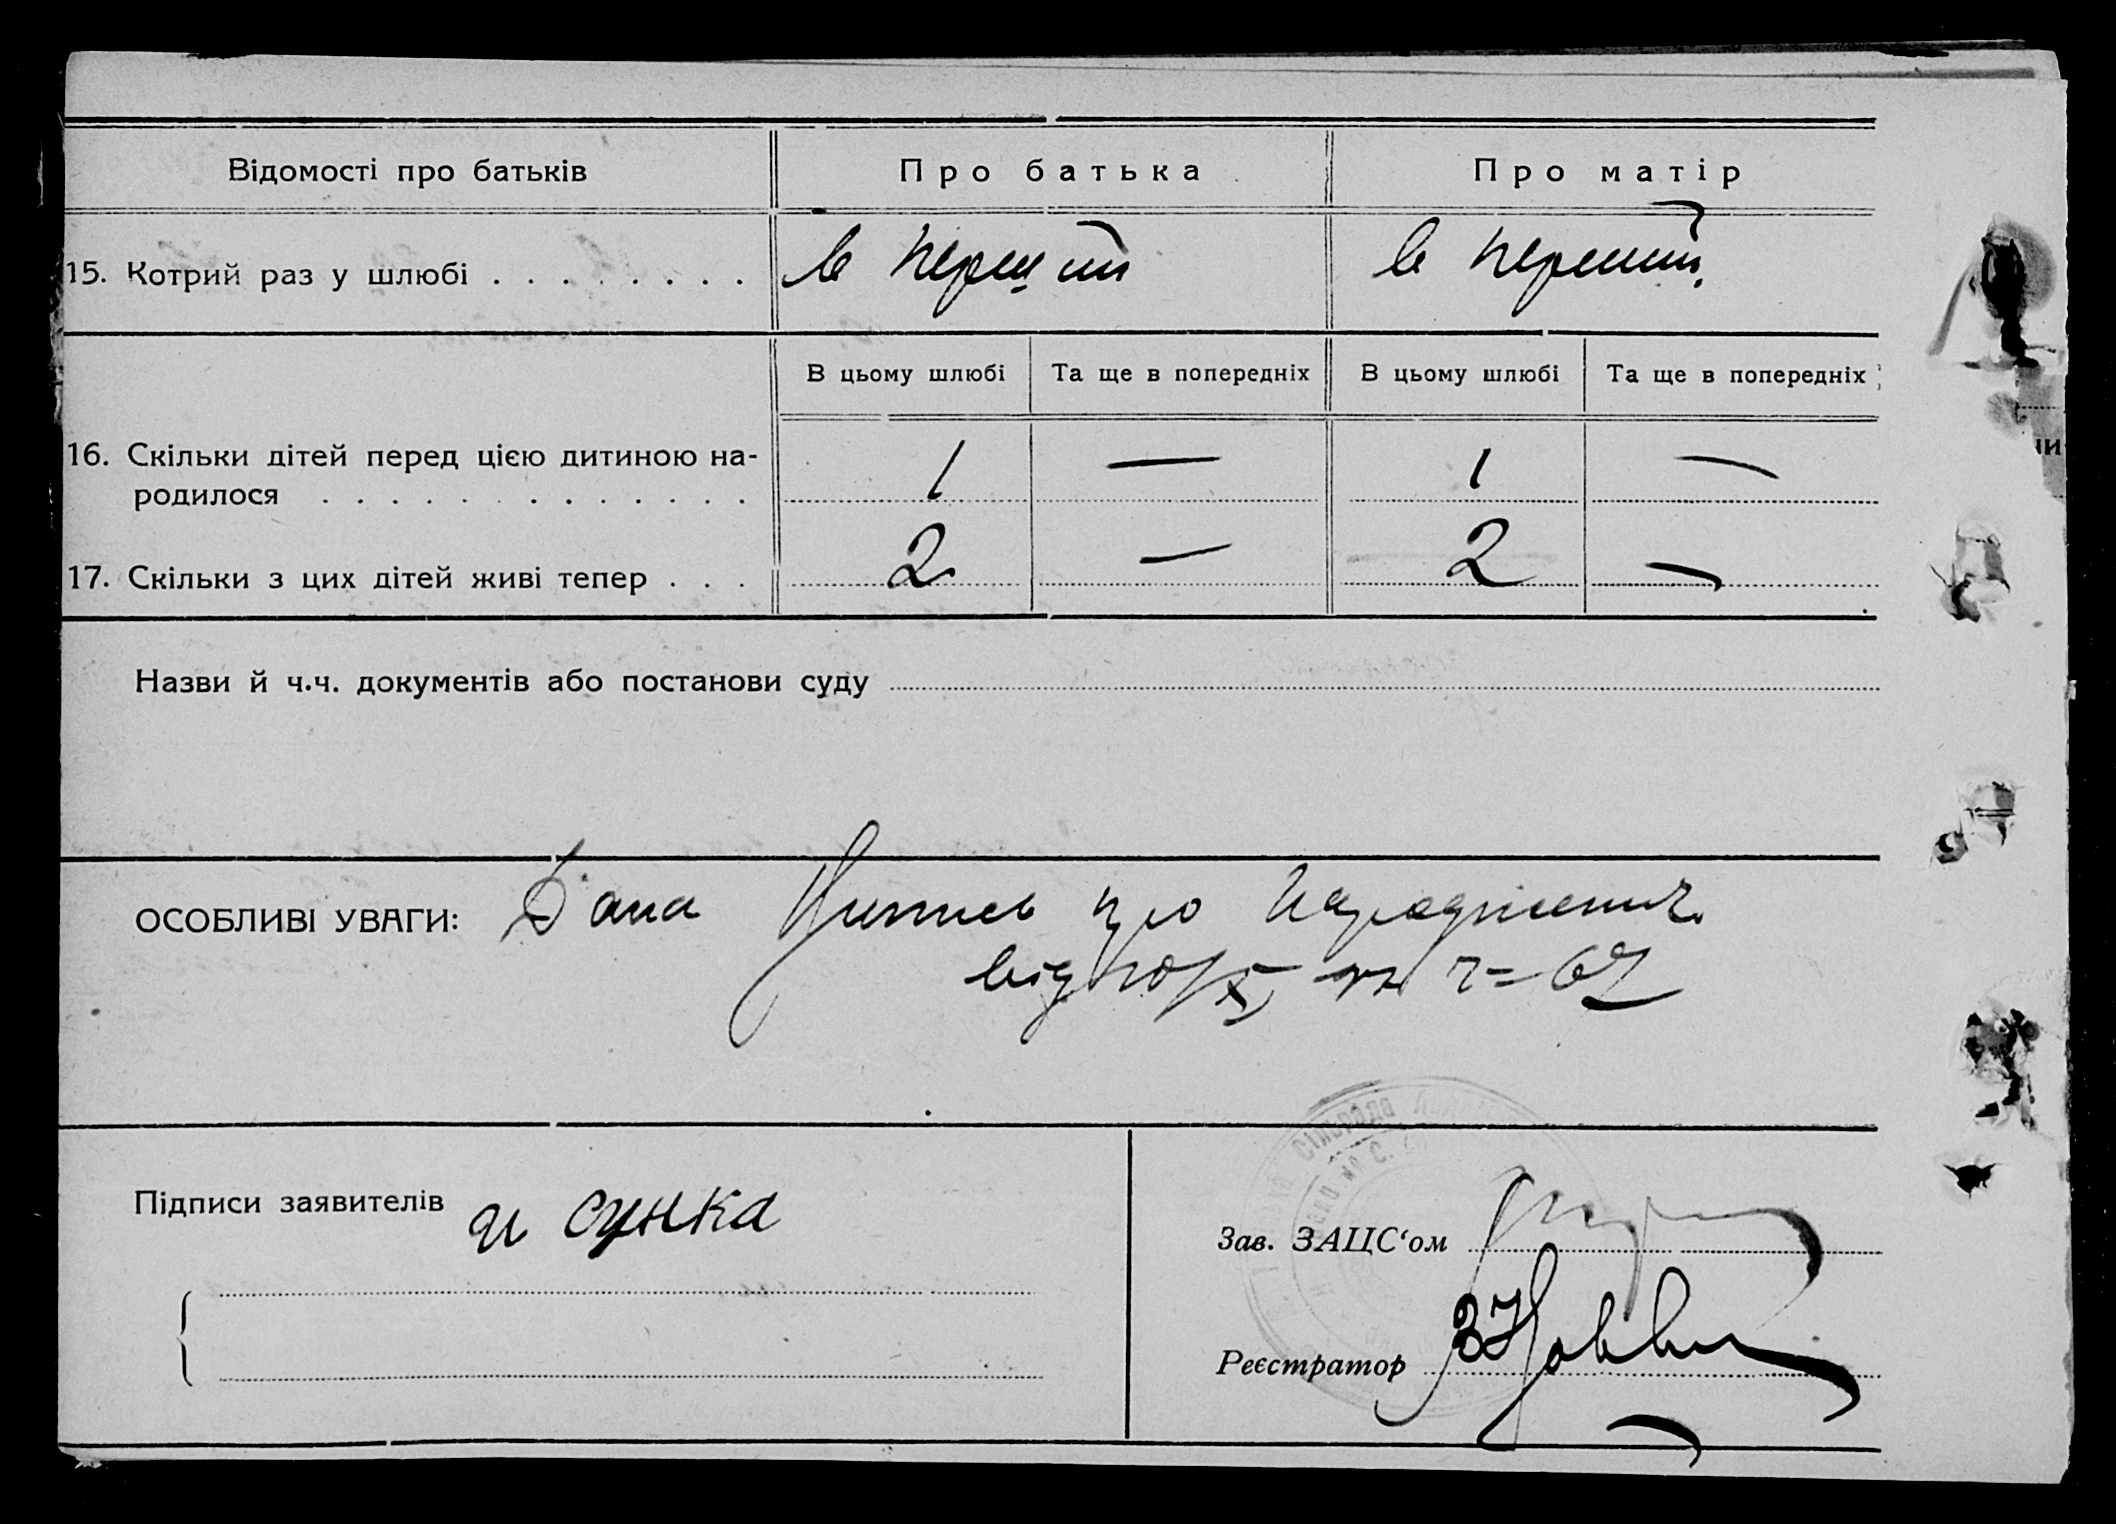 Відомості про батьків Про батька Про матір
15. Котрий раз у шлюбі . . . . . . . . в перший в перший
В цьому шлюбі Та ще в попередніх В цьому шлюбі Та ще в попередніх
16. Скільки дітей перед цією дитиною на-
родилося . . . . . . . . . . . . . 1 — 1 —
17. Скільки з цих дітей живі тепер . . . 2 — 2 —
Назви й ч.ч. документів або постанови суду
ОСОБЛИВІ УВАГИ: Дана Випись про народження
від 10/X ч= 67
Підписи заявителів и сунка
Зав. ЗАЦС‘ом
Реєстратор